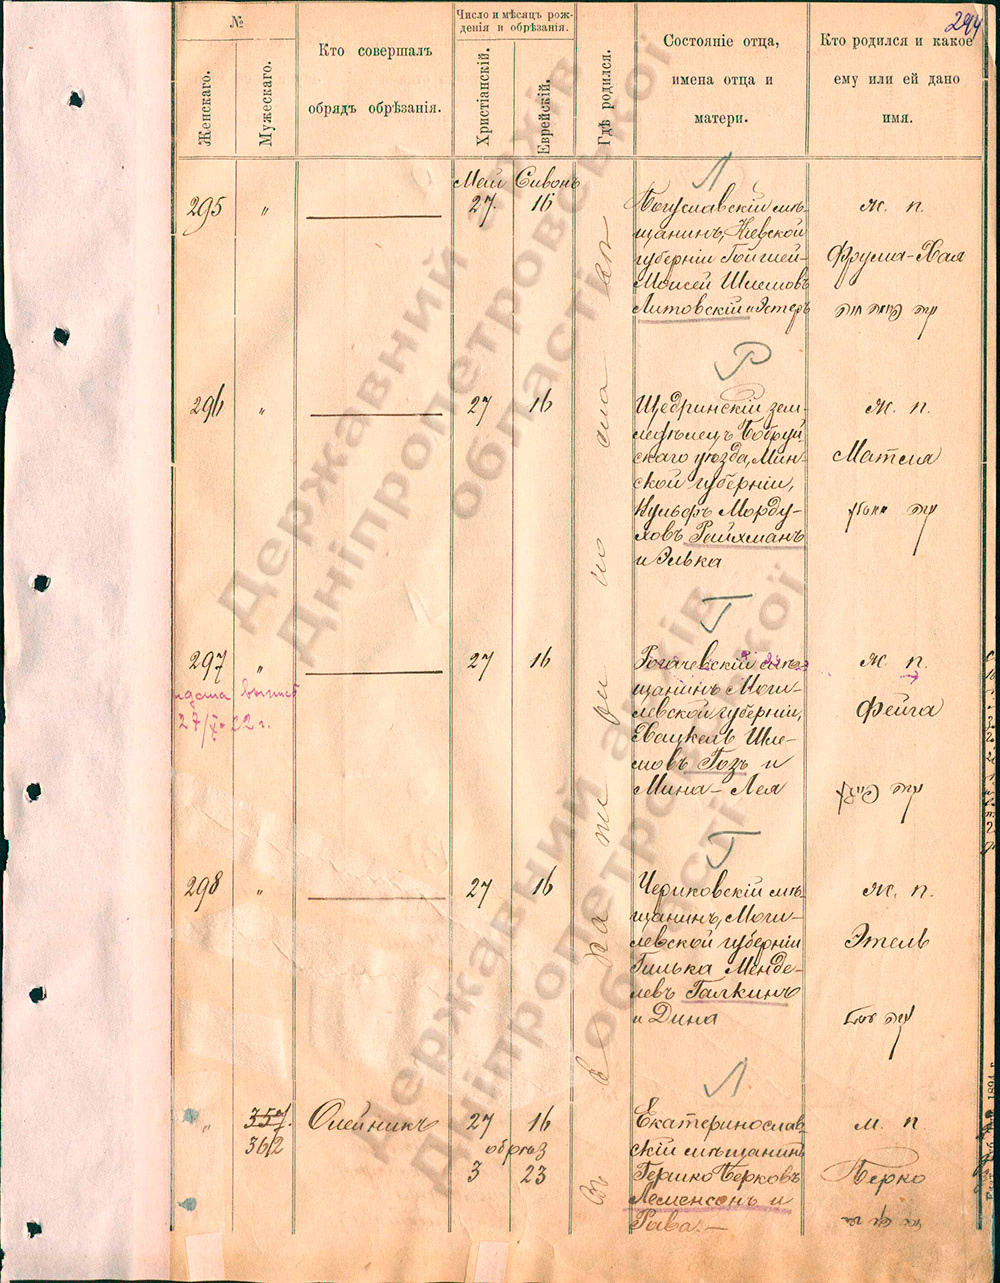 294
№
Женскаго.
Мужескаго.
Кто совершалъ
обрядъ обрѣзанія.
Число и мѣсяцъ рож-
денія и обрѣзанія.
Христіанскій.
Еврейскій.
Гдѣ родился.
Состояніе отца,
имена отца и
матери.
Кто родился и какое
ему или ей дано
имя.
Май Сивонъ
Л
295 " 27. 16
Богуславскій мѣ-
щанинъ, Кіевской
губерніи
Моисей Шлемовъ
Литовскій и Эстеръ
ж. п.
Фрума-Хая
Р
296 " 27 16
Щедринскій зем-
ледѣлецъ Бобруй-
скаго уѣзда, Мин-
ской губерніи,
Вульфъ Морду-
ховъ Рейхманъ
и Элька
ж. п.
Матля
Г
297 " 27 16
выпись
27/X-22 г.
Рогачевскій мѣ-
щанинъ Моги-
левской губерніи,
Хацкель Шле-
мовъ Гозъ и
Мина-Лея
ж. п.
Фейга
Г
298 " 27 16
Чериковскій мѣ-
щанинъ, Моги-
левской губерніи
Гилька Менде-
левъ Галкинъ
и Дина
ж. п.
Этель
Л
" 357. Олейникъ 27 16
362 обрѣз
3 23
Екатеринослав-
скій мѣщанинъ
Гершко Берковъ
Леменсонъ и
Рава.-
м. п.
Берко
Державний архів
Дніпропетровської
області
Державний архів
Дніпропетровської
області
1894 г.